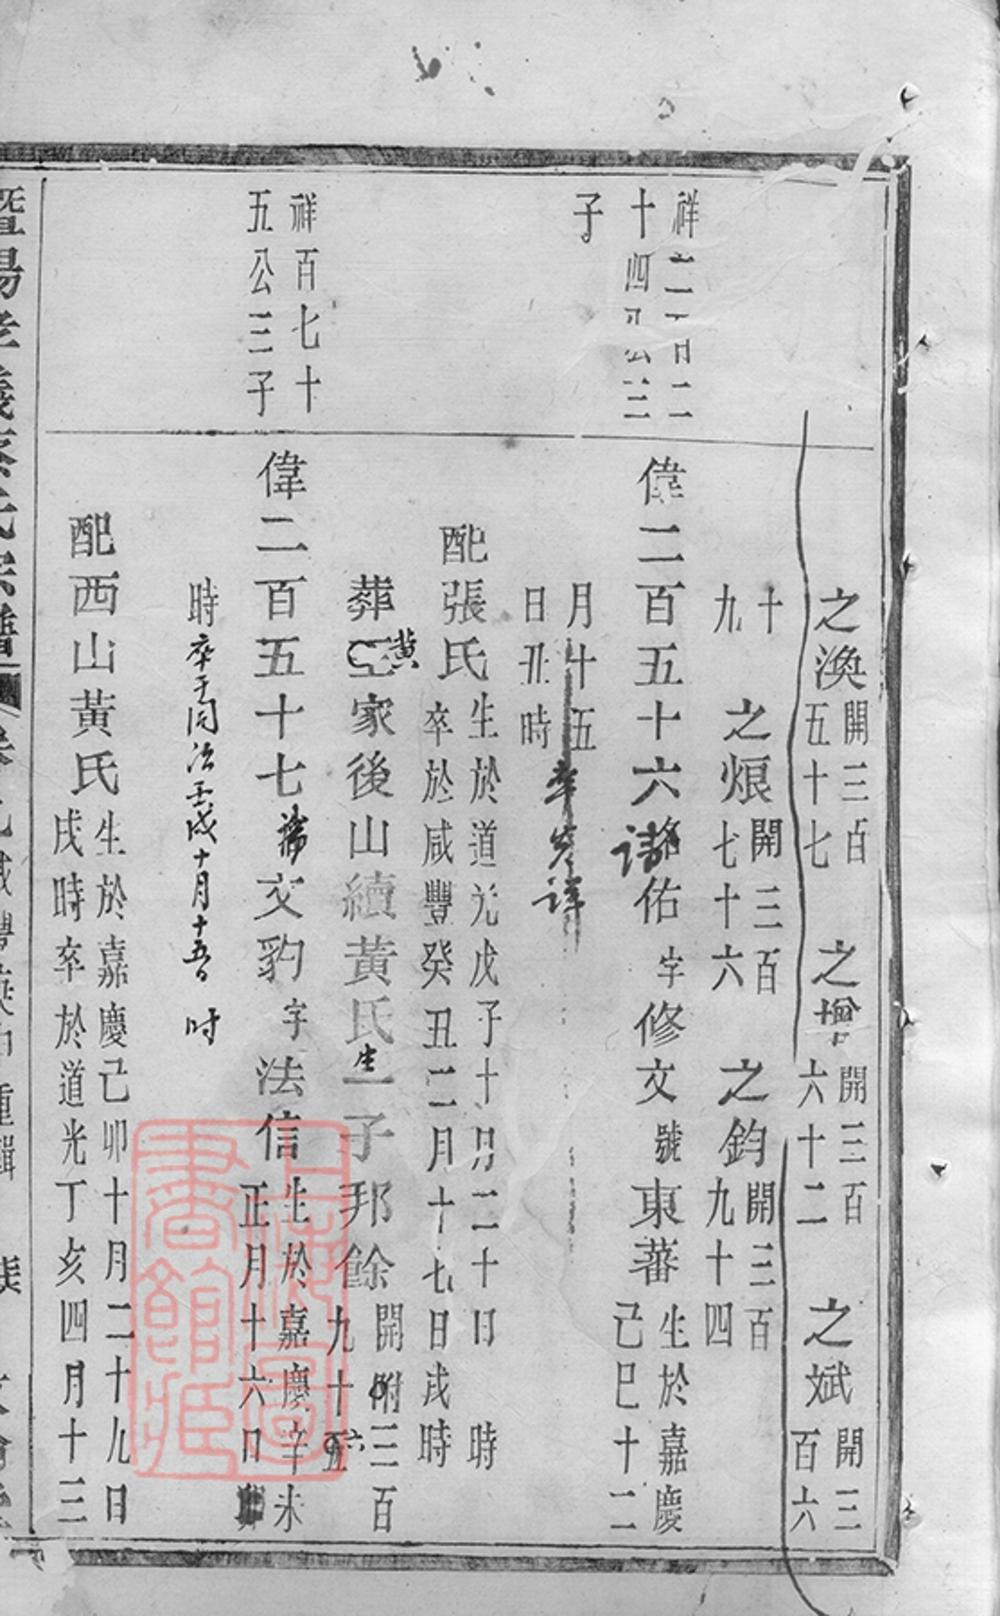 之渙開三百五十七 之增開三百六十二 之斌開三百六
十九 之烺開三百七十六 之鈞開三百九十四
祥二百二十四公三子
偉二百五十六諱佑字修文號東蕃生於嘉慶己巳十二
月十五日丑時卒失詳
配張氏生於道光戊子十月二十日時卒於咸豐癸丑二月十七日戌時
葬黃家後山續黃氏生一子邦餘開附三百九十六
祥百七十五公三子
偉二百五十七諱文豹字法信生於嘉慶辛未正月十六日
時卒于同治壬戌十月十五日 时
配西山黃氏生於嘉慶己卯十月二十九日戌時卒於道光丁亥四月十三
暨陽孝義宗譜
上海圖書館藏